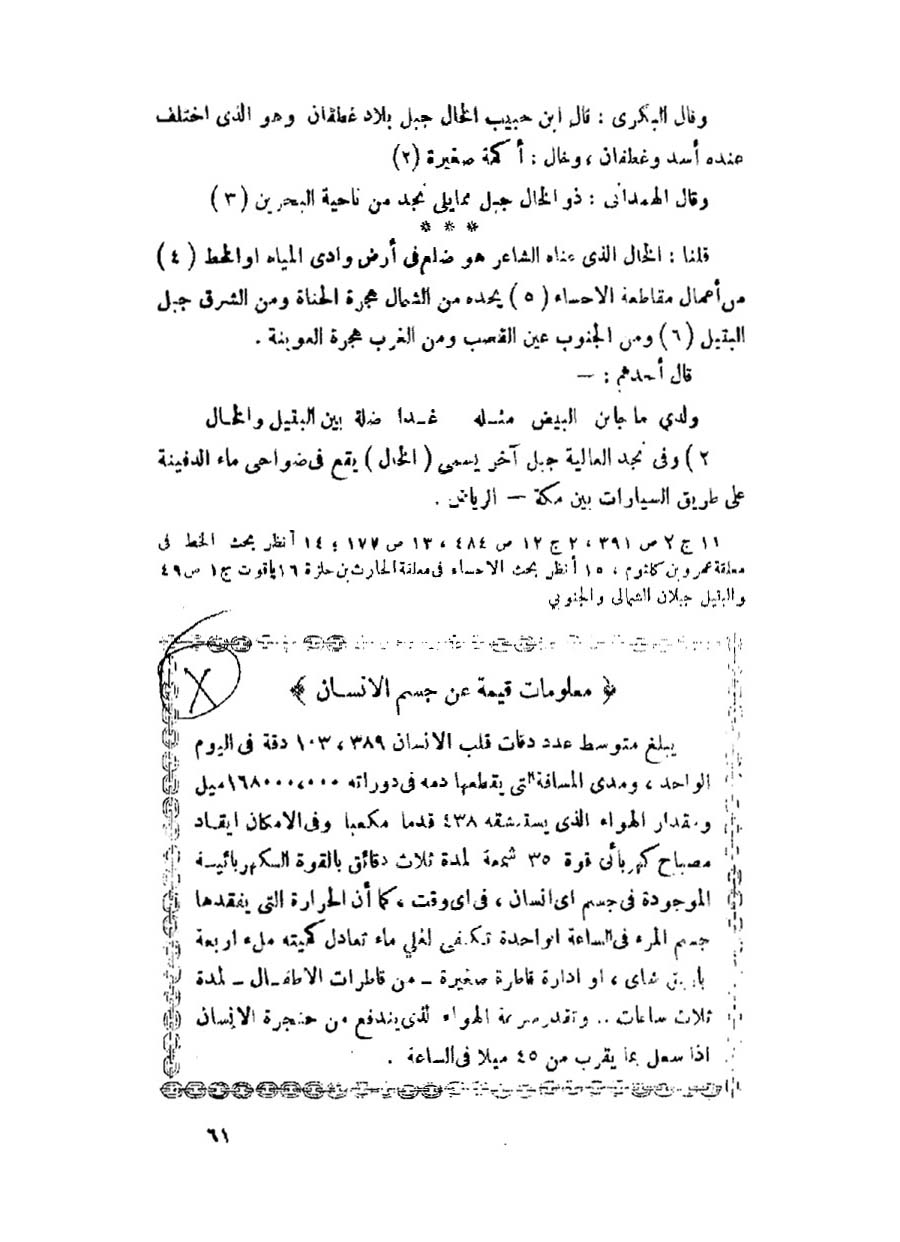 وقال البكرى : قال ابن حبيب الخال جبل ببلاد غطفان وهو الذى اختلف
عنده أسد وغطفان ، وخال : أكمة صغيرة (٢)
وقال الهمدانى : ذو الخال جبل ممايلى نجد من ناحية البحرين (٣)
* * *
قلنا : الخال الذى عناه الشاعر هو ضلع فى أرض وادى المياه او الخط (٤)
من أعمال مقاطعة الاحساء (٥) يحده من الشمال هجرة الحناة ومن الشرق جبل
البتيل (٦) ومن الجنوب عين القصب ومن الغرب هجرة العوينة .
قال أحدهم : —
ولدي ما جابن البيض مثله غدا ضلة بين البتيل والخال
٢) وفى نجد العالية جبل آخر يسمى (الخال) يقع فى ضواحى ماء الدفينة
على طريق السيارات بين مكة — الرياض .
١١ ج ٢ ص ٣٩١ ، ٢ ج ١٢ ص ٤٨٤ ، ١٣ ص ١٧٧ ؛ ١٤ أنظر بحث الخط فى
معلقة عمرو بن كلثوم ، ١٥ أنظر بحث الاحساء فى معلقة الحارث بن حلزة ١٦ ياقوت ج ١ ص ٤٩
والبتيل جبلان الشمالى والجنوبي
X
﴿ معلومات قيمة عن جسم الانسان ﴾
يبلغ متوسط عدد دقات قلب الانسان ١٠٣،٣٨٩ دقة فى اليوم
الواحد ، ومدى المسافة التى يقطعها دمه فى دوراته ١٦٨٠٠٠،٠٠٠ ميل
ومقدار الهواء الذى يستنشقه ٤٣٨ قدما مكعبا وفى الامكان ايقاد
مصباح كهربائى قوة ٣٥ شمعة لمدة ثلاث دقائق بالقوة الكهربائية
الموجودة فى جسم اى انسان ، فى اى وقت ، كما أن الحرارة التى يفقدها
جسم المرء فى الساعة الواحدة تكفى لغلي ماء تعادل كميته ملء اربعة
باريق شاى ، او ادارة قاطرة صغيرة - من قاطرات الاطفال - لمدة
ثلاث ساعات .. وتقدر سرعة الهواء الذى يندفع من حنجرة الانسان
اذا سعل بما يقرب من ٤٥ ميلا فى الساعة .
٦١